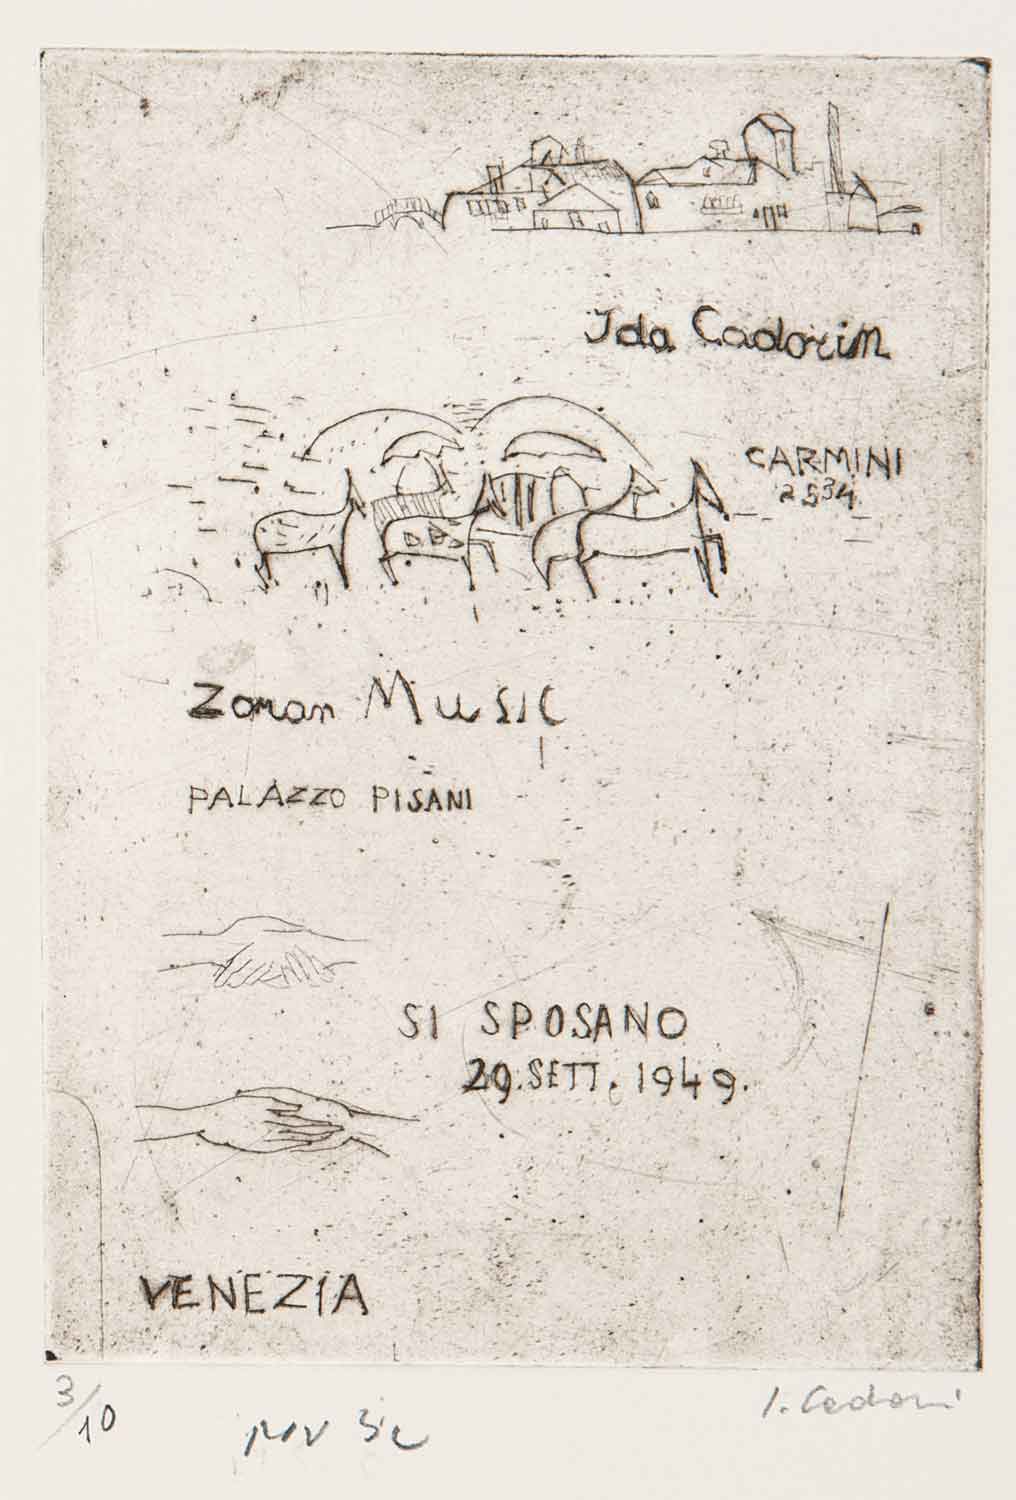 Ida Cadorin
CARMINI
2534
Zoran Music
PALAZZO PISANI
SI SPOSANO
29. SETT. 1949.
VENEZIA
3/10